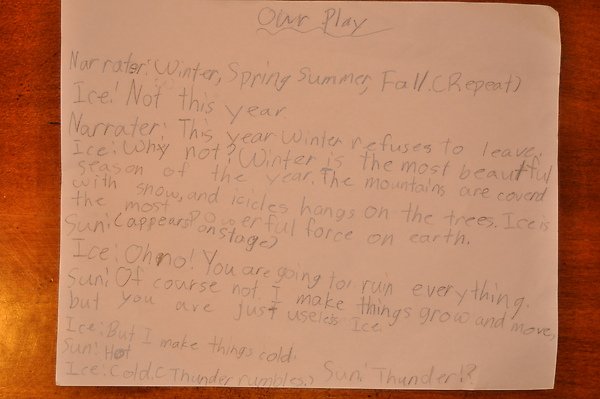 Our Play
Narrater: Winter, Spring Summer, Fall. (Repeat)
Ice: Not this year.
Narrater: This year Winter refuses to leave.
Ice: Why not? Winter is the most beautiful
season of the year. The mountains are coverd
with snow, and icicles hangs on the trees. Ice is
the most powerful force on earth.
Sun: (appears on stage)
Ice: Oh no! You are going to ruin everything.
Sun: Of course not. I make things grow and move,
but you are just useless Ice.
Ice: But I make things cold.
Sun: Hot
Ice: Cold. (Thunder rumbles.) Sun: Thunder!?